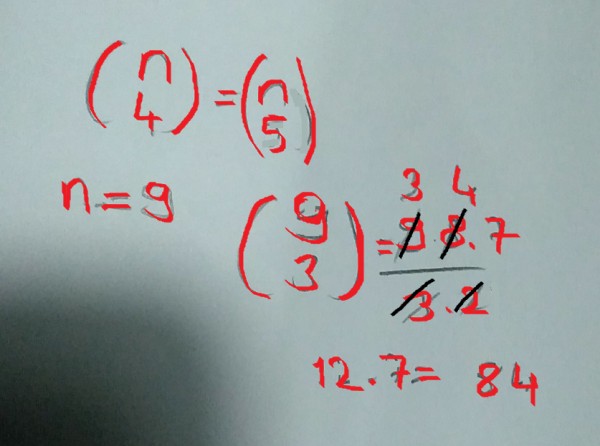 (n 4) = (n 5)
n = 9
3 4
(9 3) = 9.8.7
3.2
12.7 = 84